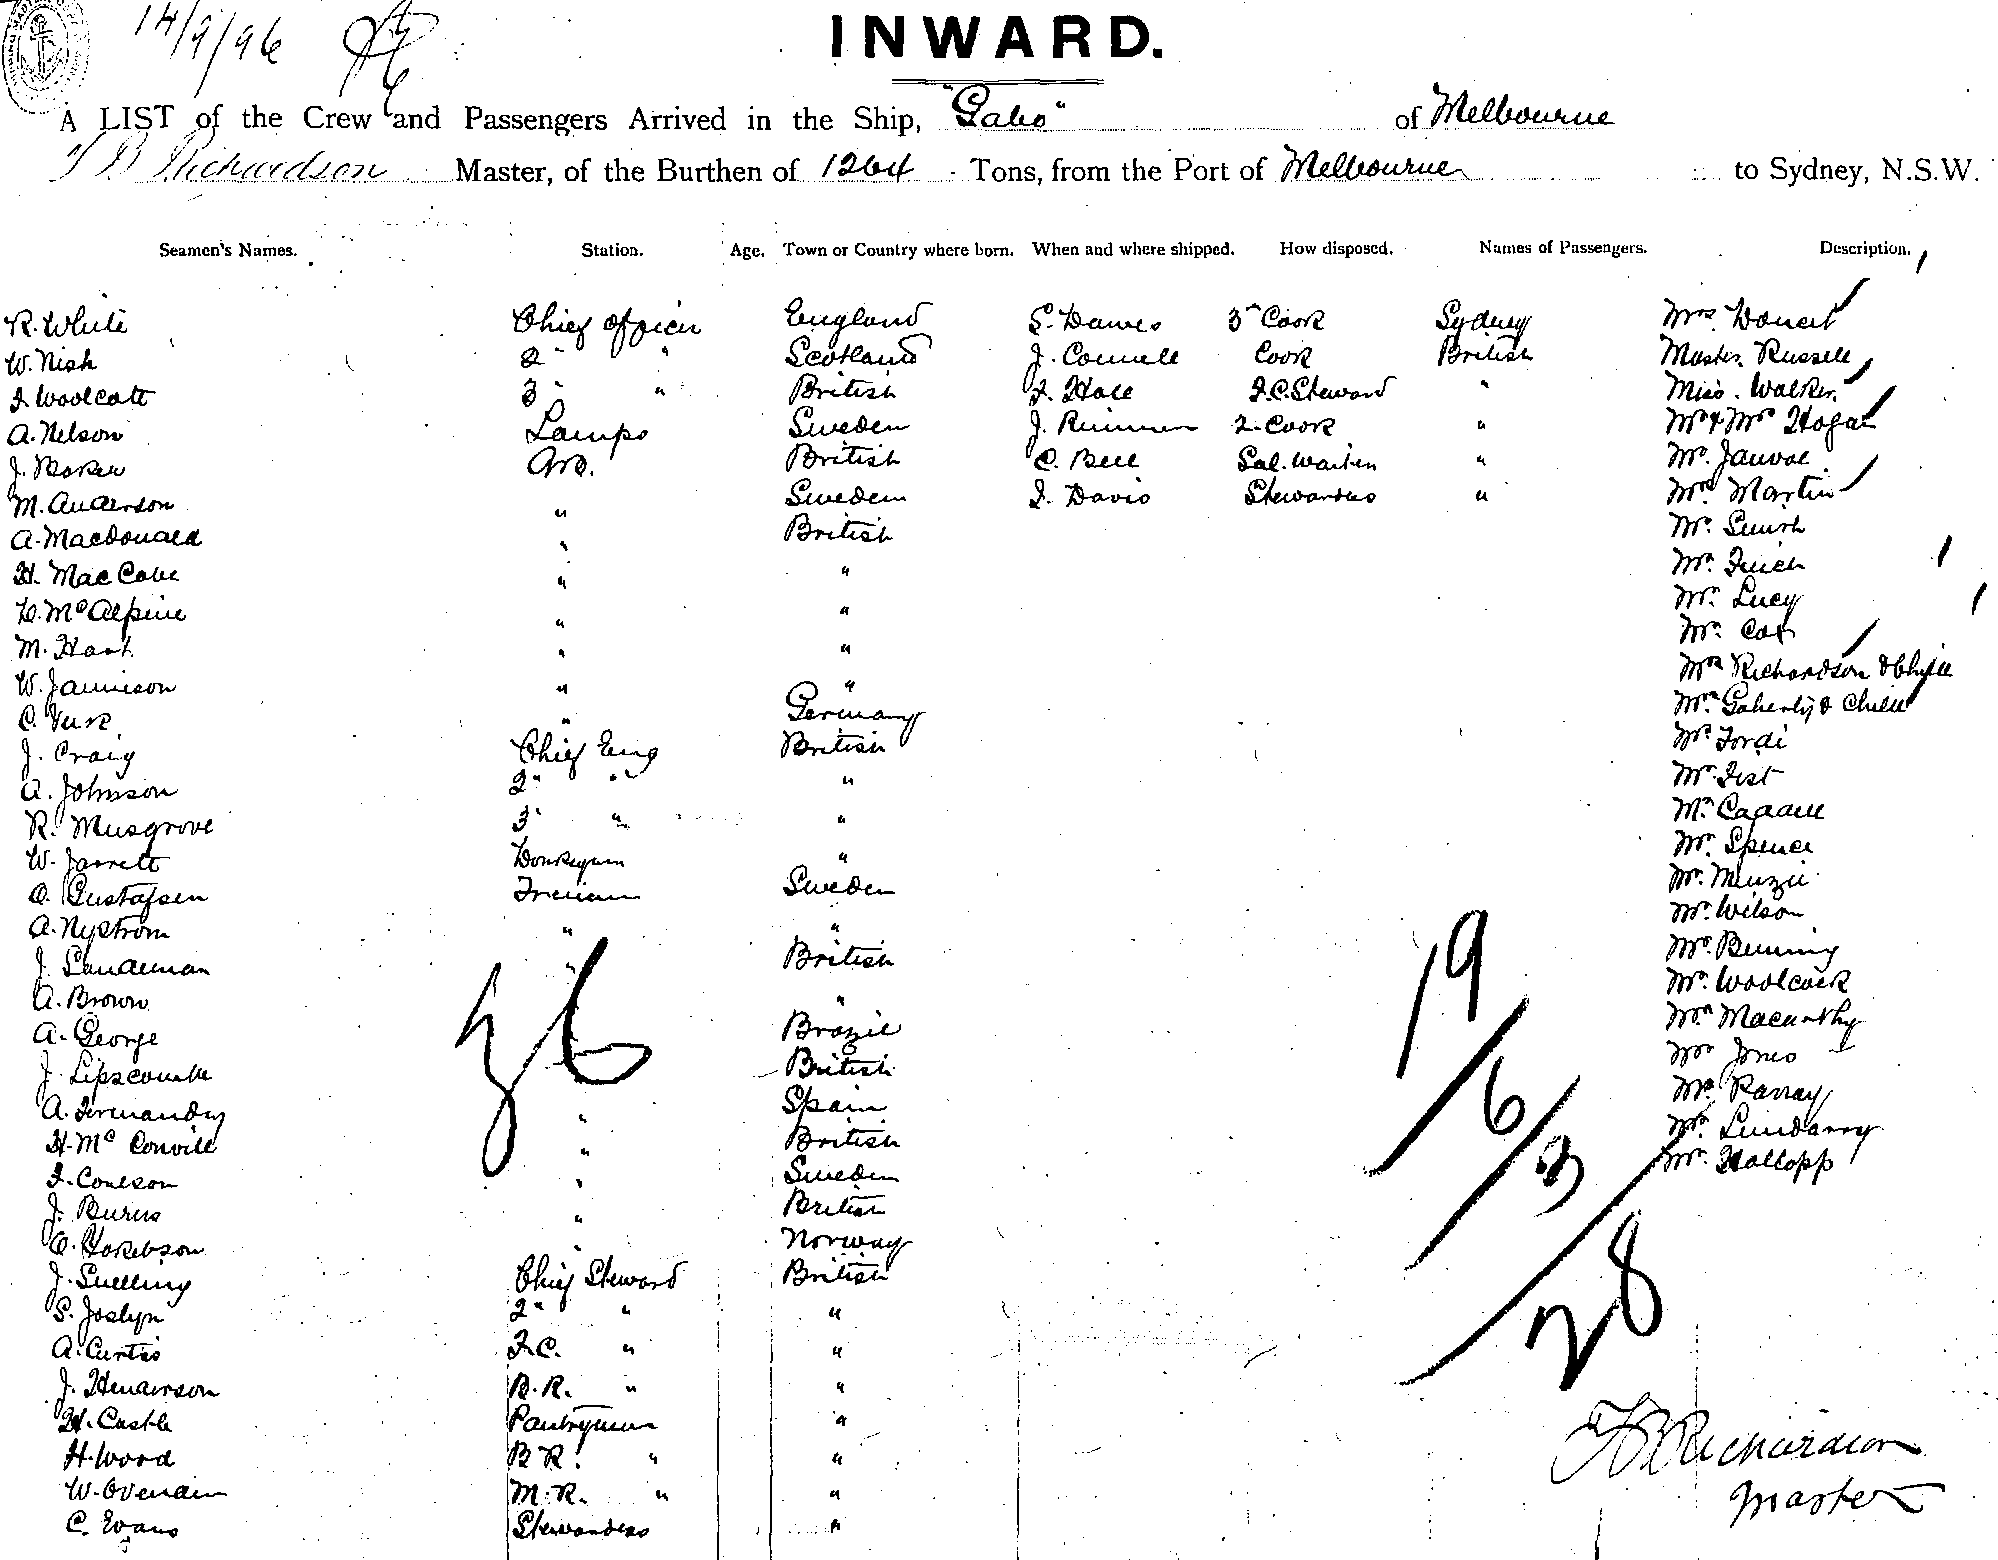 14/9/96
INWARD.
A LIST of the Crew and Passengers Arrived in the Ship, "Gabo" of Melbourne
Richardson Master, of the Burthen of 1264 Tons, from the Port of Melbourne to Sydney, N.S.W.
Seamen's Names. Station. Age. Town or Country where born. When and where shipped. How disposed. Names of Passengers. Description.
R. White Chief Officer England S. Dawes 3rd Cook Sydney Mrs
W. Nish 2 " " Scotland J. Connell Cook British Master Russell
F. Woolcott 3 " " British F. Hall F.C. Steward " Miss Walker
A. Nelson Lamps Sweden J. 2 Cook " Mr & Mrs Hogan
J. Baker A.B. British C. Bell Sal. Waiter "
M. Anderson " Sweden F. Davis Stewardess " Mrs Martin
A. Macdonald " British Mr.
H. MacCabe " " Mr. Finch
D. McAlpine " " Mr. Lucy
M. Hart " " Mr. Cox
W. Jamieson " " Mrs Richardson & Child
C. Turk " Germany & Child
J. Craig Chief Eng British Mr
A. Johnson 2 " " " Mr.
R. Musgrove 3 " " " Mr.
W. Jarrett Donkeyman " Mr. Spence
O. Gustafsen Fireman Sweden Mr. Menzie
A. Nystrom " " Mr. Wilson
J. Sandeman " British Mr.
A. Brown " Mr. Woolcock
A. George Brazil Macarthy
J. Lipscombe British Jones
A. Fernandez " Spain
H. Mc Convill " British Mr.
F. Coulson " Sweden Mr.
J. Burns " British
C. Jakobson " Norway
J. Snelling Chief Steward British
S. Joslyn 2 " " "
A. Curtis F.C. " "
J. Henderson B.R. " "
H. Castle Pantryman "
H. Wood B.R. " "
W. Ovenden M.R. " "
C. Evans Stewardess "
36
19
6
3
28
Richardson
Master